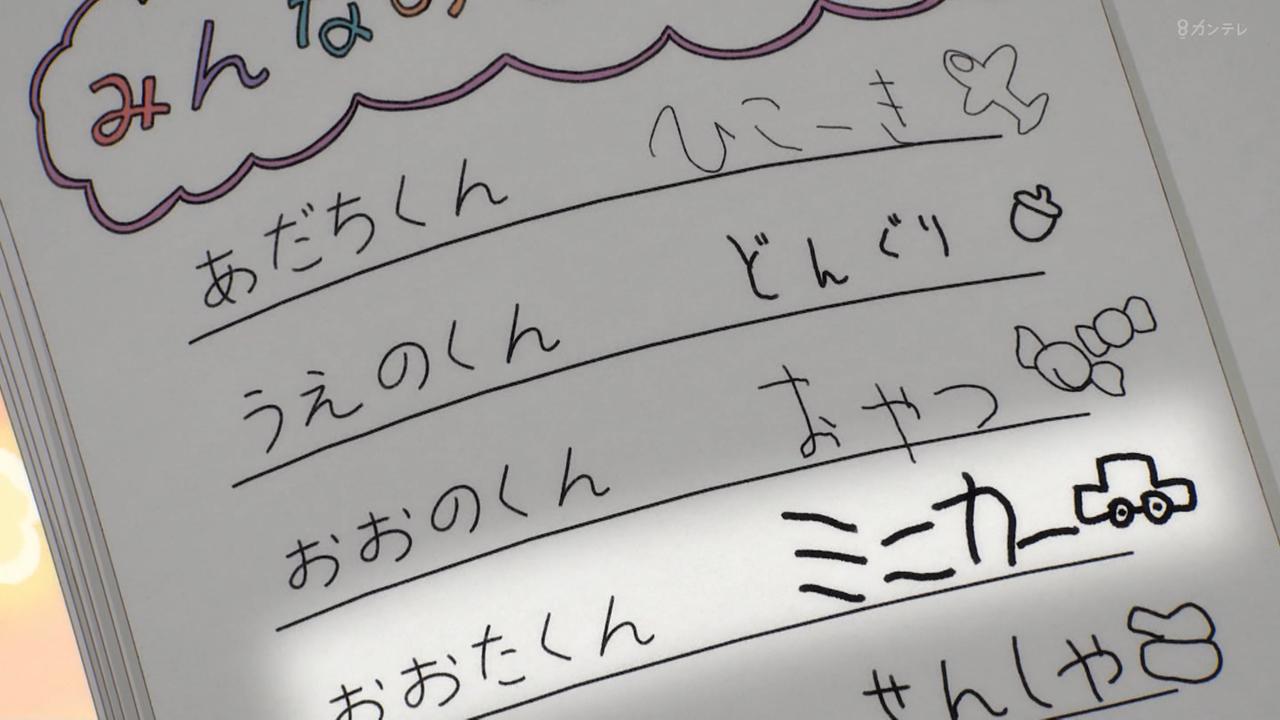 カンテレ
みんなの
あだちくん ひこーき
うえのくん どんぐり
おおのくん おやつ
おおたくん ミニカー
せんしゃ